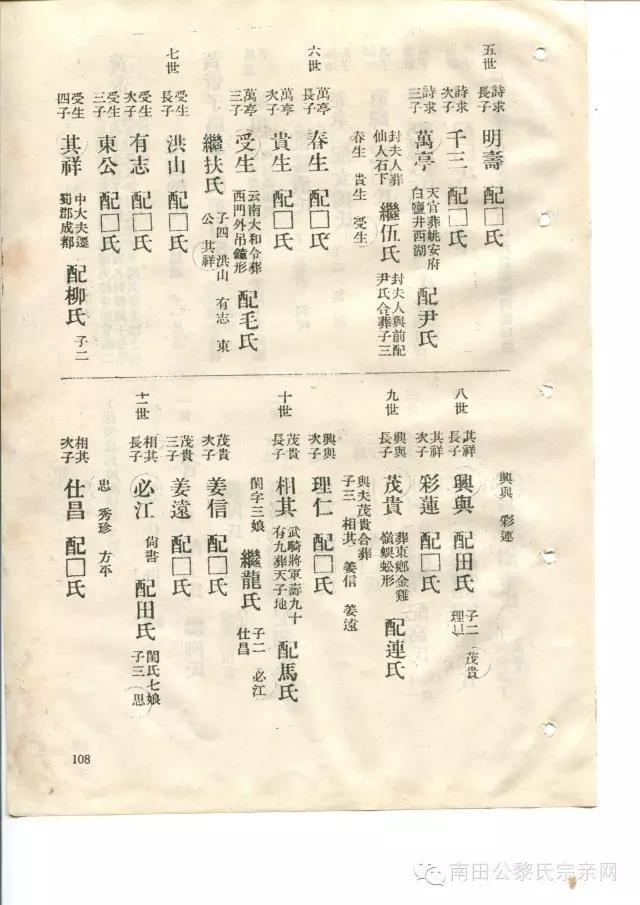 五世
詩求長子 明壽 配□氏
詩求次子 千三 配□氏
詩求三子 萬亭 天官葬姚安府白鹽井西湖 配尹氏
封夫人葬仙人石下 繼伍氏 封夫人與前配尹氏合葬子三
春生 貴生 受生
六世
萬亭長子 春生 配□氏
萬亭次子 貴生 配□氏
萬亭三子 受生 云南大和令葬西門外吊鐘形 配毛氏
繼扶氏 子四 洪山 有志 東公 其祥
七世
受生長子 洪山 配□氏
受生次子 有志 配□氏
受生三子 東公 配□氏
受生四子 其祥 中大夫遷蜀郡成都 配柳氏 子二
興與 彩連
八世
其祥長子 興與 配田氏 子二 茂貴 理仁
其祥次子 彩蓮 配□氏
九世
興與長子 茂貴 葬東鄉金雞嶺蜈蚣形 配連氏
與夫茂貴合葬子三 相其 姜信 姜遠
興與次子 理仁 配□氏
十世
茂貴長子 相其 武騎將軍壽九十有九葬天子地 配馬氏
閏字三娘 繼龍氏 子二 必江 仕昌
茂貴次子 姜信 配□氏
茂貴三子 姜遠 配□氏
十一世
相其長子 必江 尙書 配田氏 閏氏七娘子三 思
忠 秀珍 方平
相其次子 仕昌 配□氏
108
南田公黎氏宗亲网